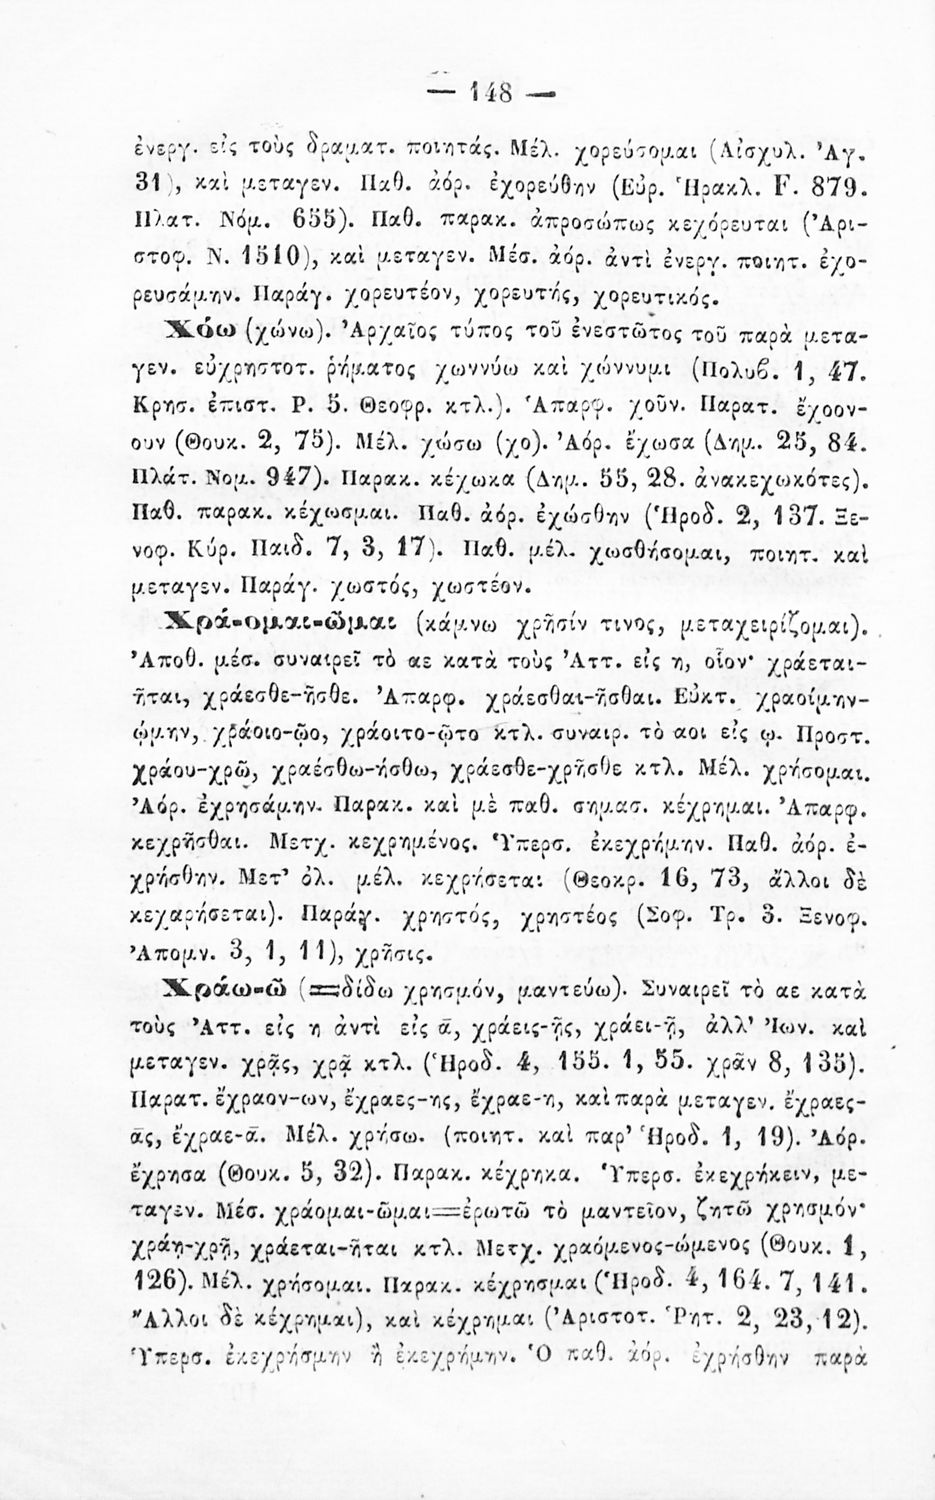 — 148 —
ἐνεργ. εἰς τοὺς δραματ. ποιητάς. Μέλ. χορεύσομαι (Αἰσχυλ. Ἀγ.
31), καὶ μεταγεν. Παθ. ἀόρ. ἐχορεύθην (Εὐρ. Ἡρακλ. F. 879.
Πλατ. Νόμ. 655). Παθ. παρακ. ἀπροσώπως κεχόρευται (Ἀρι-
στοφ. Ν. 1510), καὶ μεταγεν. Μέσ. ἀόρ. ἀντὶ ἐνεργ. ποιητ. ἐχο-
ρευσάμην. Παράγ. χορευτέον, χορευτής, χορευτικός.
Χόω (χώνω). Ἀρχαῖος τύπος τοῦ ἐνεστῶτος τοῦ παρὰ μετα-
γεν. εὐχρηστοτ. ῥήματος χωννύω καὶ χώννυμι (Πολυβ. 1, 47.
Κρησ. ἐπιστ. Ρ. 5. Θεοφρ. κτλ.). Ἀπαρφ. χοῦν. Παρατ. ἔχοον-
ουν (Θουκ. 2, 75). Μέλ. χώσω (χο). Ἀόρ. ἔχωσα (Δημ. 25, 84.
Πλάτ. Νομ. 947). Παρακ. κέχωκα (Δημ. 55, 28. ἀνακεχωκότες).
Παθ. παρακ. κέχωσμαι. Παθ. ἀόρ. ἐχώσθην (Ἡροδ. 2, 137. Ξε-
νοφ. Κύρ. Παιδ. 7, 3, 17). Παθ. μέλ. χωσθήσομαι, ποιητ. καὶ
μεταγεν. Παράγ. χωστός, χωστέον.
Χρά-ομαι-ῶμαι (κάμνω χρῆσίν τινος, μεταχειρίζομαι).
Ἀποθ. μέσ. συναιρεῖ τὸ αε κατὰ τοὺς Ἀττ. εἰς η, οἷον· χράεται-
ῆται, χράεσθε-ῆσθε. Ἀπαρφ. χράεσθαι-ῆσθαι. Εὐκτ. χραοίμην-
ῴμην, χράοιο-ῷο, χράοιτο-ῷτο κτλ. συναιρ. τὸ αοι εἰς ῳ. Προστ.
χράου-χρῶ, χραέσθω-ήσθω, χράεσθε-χρῆσθε κτλ. Μέλ. χρήσομαι.
Ἀόρ. ἐχρησάμην. Παρακ. καὶ μὲ παθ. σημασ. κέχρημαι. Ἀπαρφ.
κεχρῆσθαι. Μετχ. κεχρημένος. Ὑπερσ. ἐκεχρήμην. Παθ. ἀόρ. ἐ-
χρήσθην. Μετ’ ὀλ. μέλ. κεχρήσεται (Θεοκρ. 16, 73, ἄλλοι δὲ
κεχαρήσεται). Παράγ. χρηστός, χρηστέος (Σοφ. Τρ. 3. Ξενοφ.
Ἀπομν. 3, 1, 11), χρῆσις.
Χράω-ῶ (=δίδω χρησμόν, μαντεύω). Συναιρεῖ τὸ αε κατὰ
τοὺς Ἀττ. εἰς η ἀντὶ εἰς ᾱ, χράεις-ῇς, χράει-ῇ, ἀλλ’ Ἰων. καὶ
μεταγεν. χρᾷς, χρᾷ κτλ. (Ἡροδ. 4, 155. 1, 55. χρᾶν 8, 135).
Παρατ. ἔχραον-ων, ἔχραες-ης, ἔχραε-η, καὶ παρὰ μεταγεν. ἔχραες-
ᾱς, ἔχραε-ᾱ. Μέλ. χρήσω. (ποιητ. καὶ παρ’ Ἡροδ. 1, 19). Ἀόρ.
ἔχρησα (Θουκ. 5, 32). Παρακ. κέχρηκα. Ὑπερσ. ἐκεχρήκειν, με-
ταγεν. Μέσ. χράομαι-ῶμαι=ἐρωτῶ τὸ μαντεῖον, ζητῶ χρησμόν·
χράῃ-χρῇ, χράεται-ῆται κτλ. Μετχ. χραόμενος-ώμενος (Θουκ. 1,
126). Μέλ. χρήσομαι. Παρακ. κέχρησμαι (Ἡροδ. 4, 164. 7, 141.
Ἄλλοι δὲ κέχρημαι), καὶ κέχρημαι (Ἀριστοτ. Ῥητ. 2, 23, 12).
Ὑπερσ. ἐκεχρήσμην ἢ ἐκεχρήμην. Ὁ παθ. ἀόρ. ἐχρήσθην παρὰ